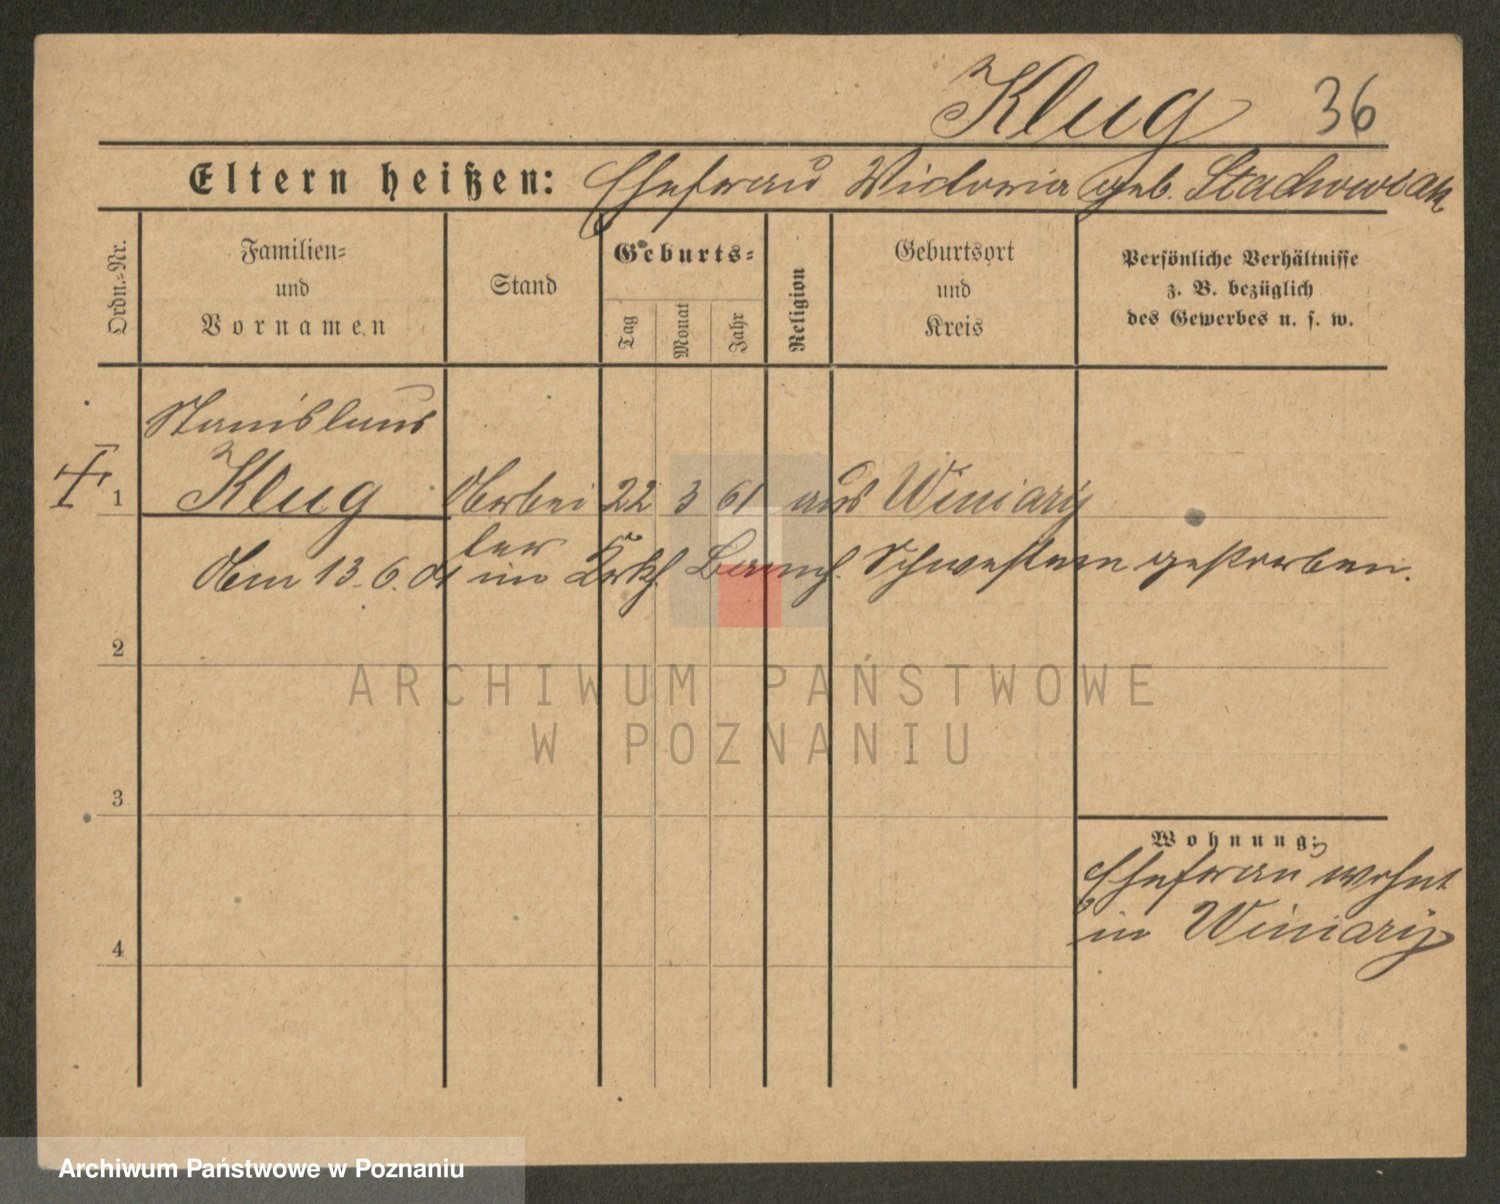 Klug 36
Eltern heißen: Ehefrau Victoria geb. Stachowiak
Ordn.-Nr.
Familien-
und
Vornamen
Stand
Geburts-
Tag
Monat
Jahr
Religion
Geburtsort
und
Kreis
Persönliche Verhältnisse
z. B. bezüglich
des Gewerbes u. s. w.
Stanislaus
1 Klug Arbei 22 3 61 aus Winiary
ter
Am 13.6.01 im Krkh. Barmh. Schwestern gestorben.
2
3
4
Wohnung:
Ehefrau wohnt
in Winiary
ARCHIWUM PAŃSTWOWE
W POZNANIU
Archiwum Państwowe w Poznaniu